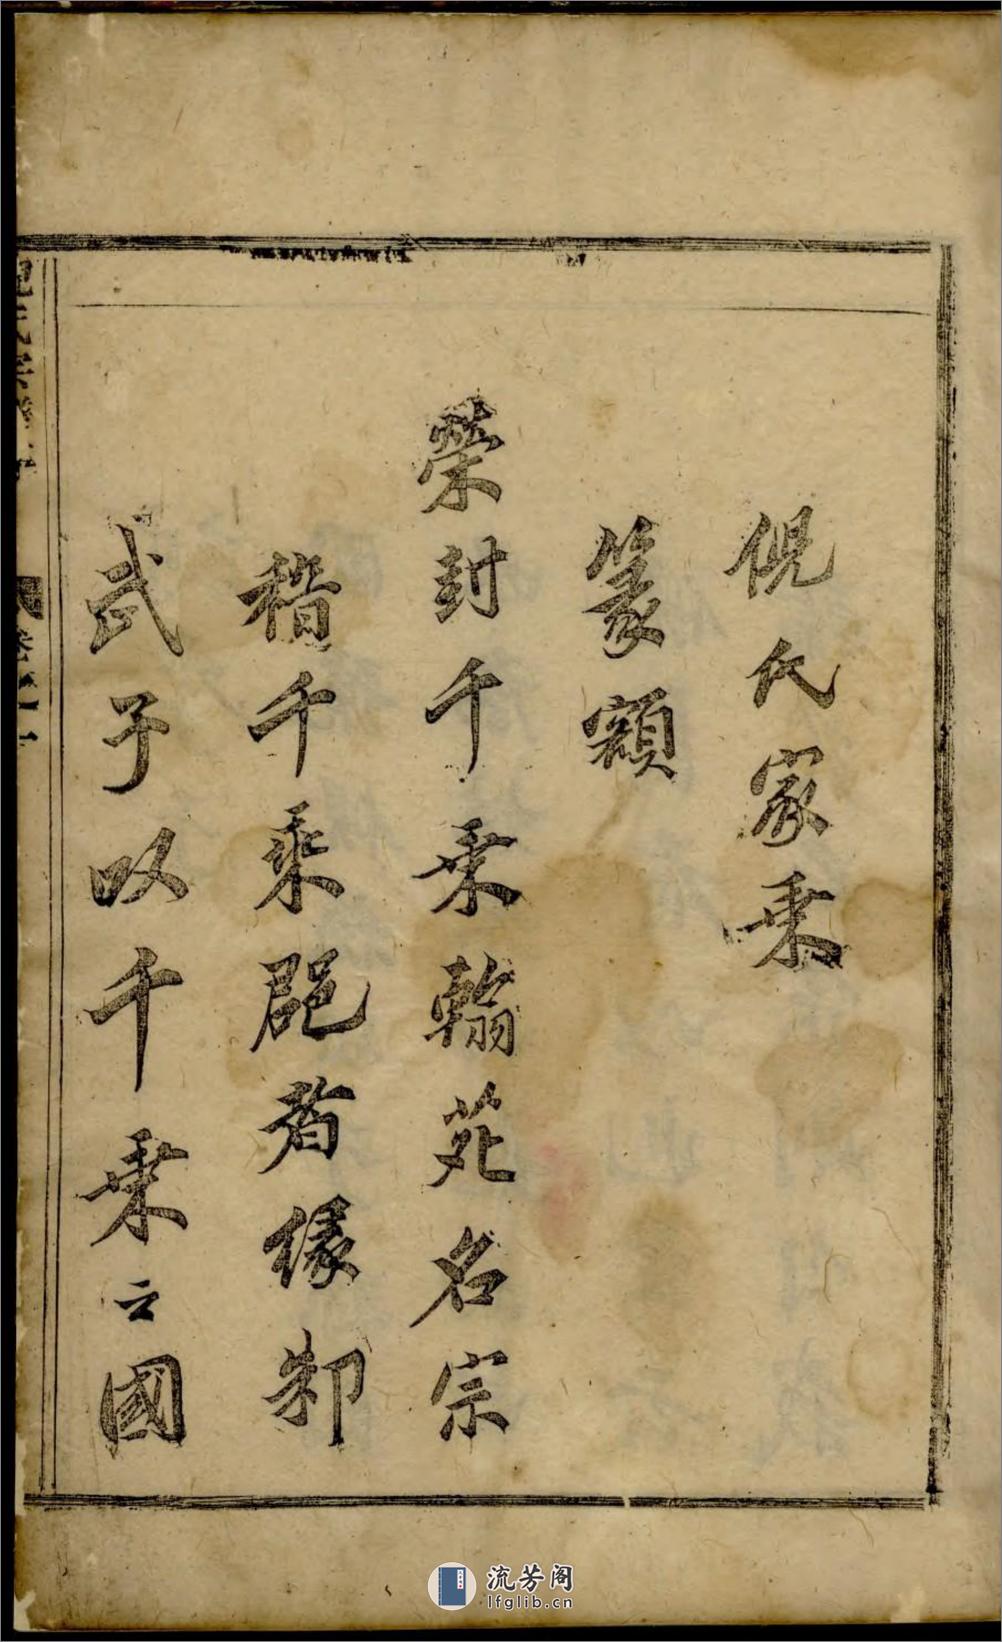 倪氏家乘
篆額
榮封千乘翰苑名宗
稽千乘郡者緣邾
武子以千乘之國
流芳阁
lfglib.cn